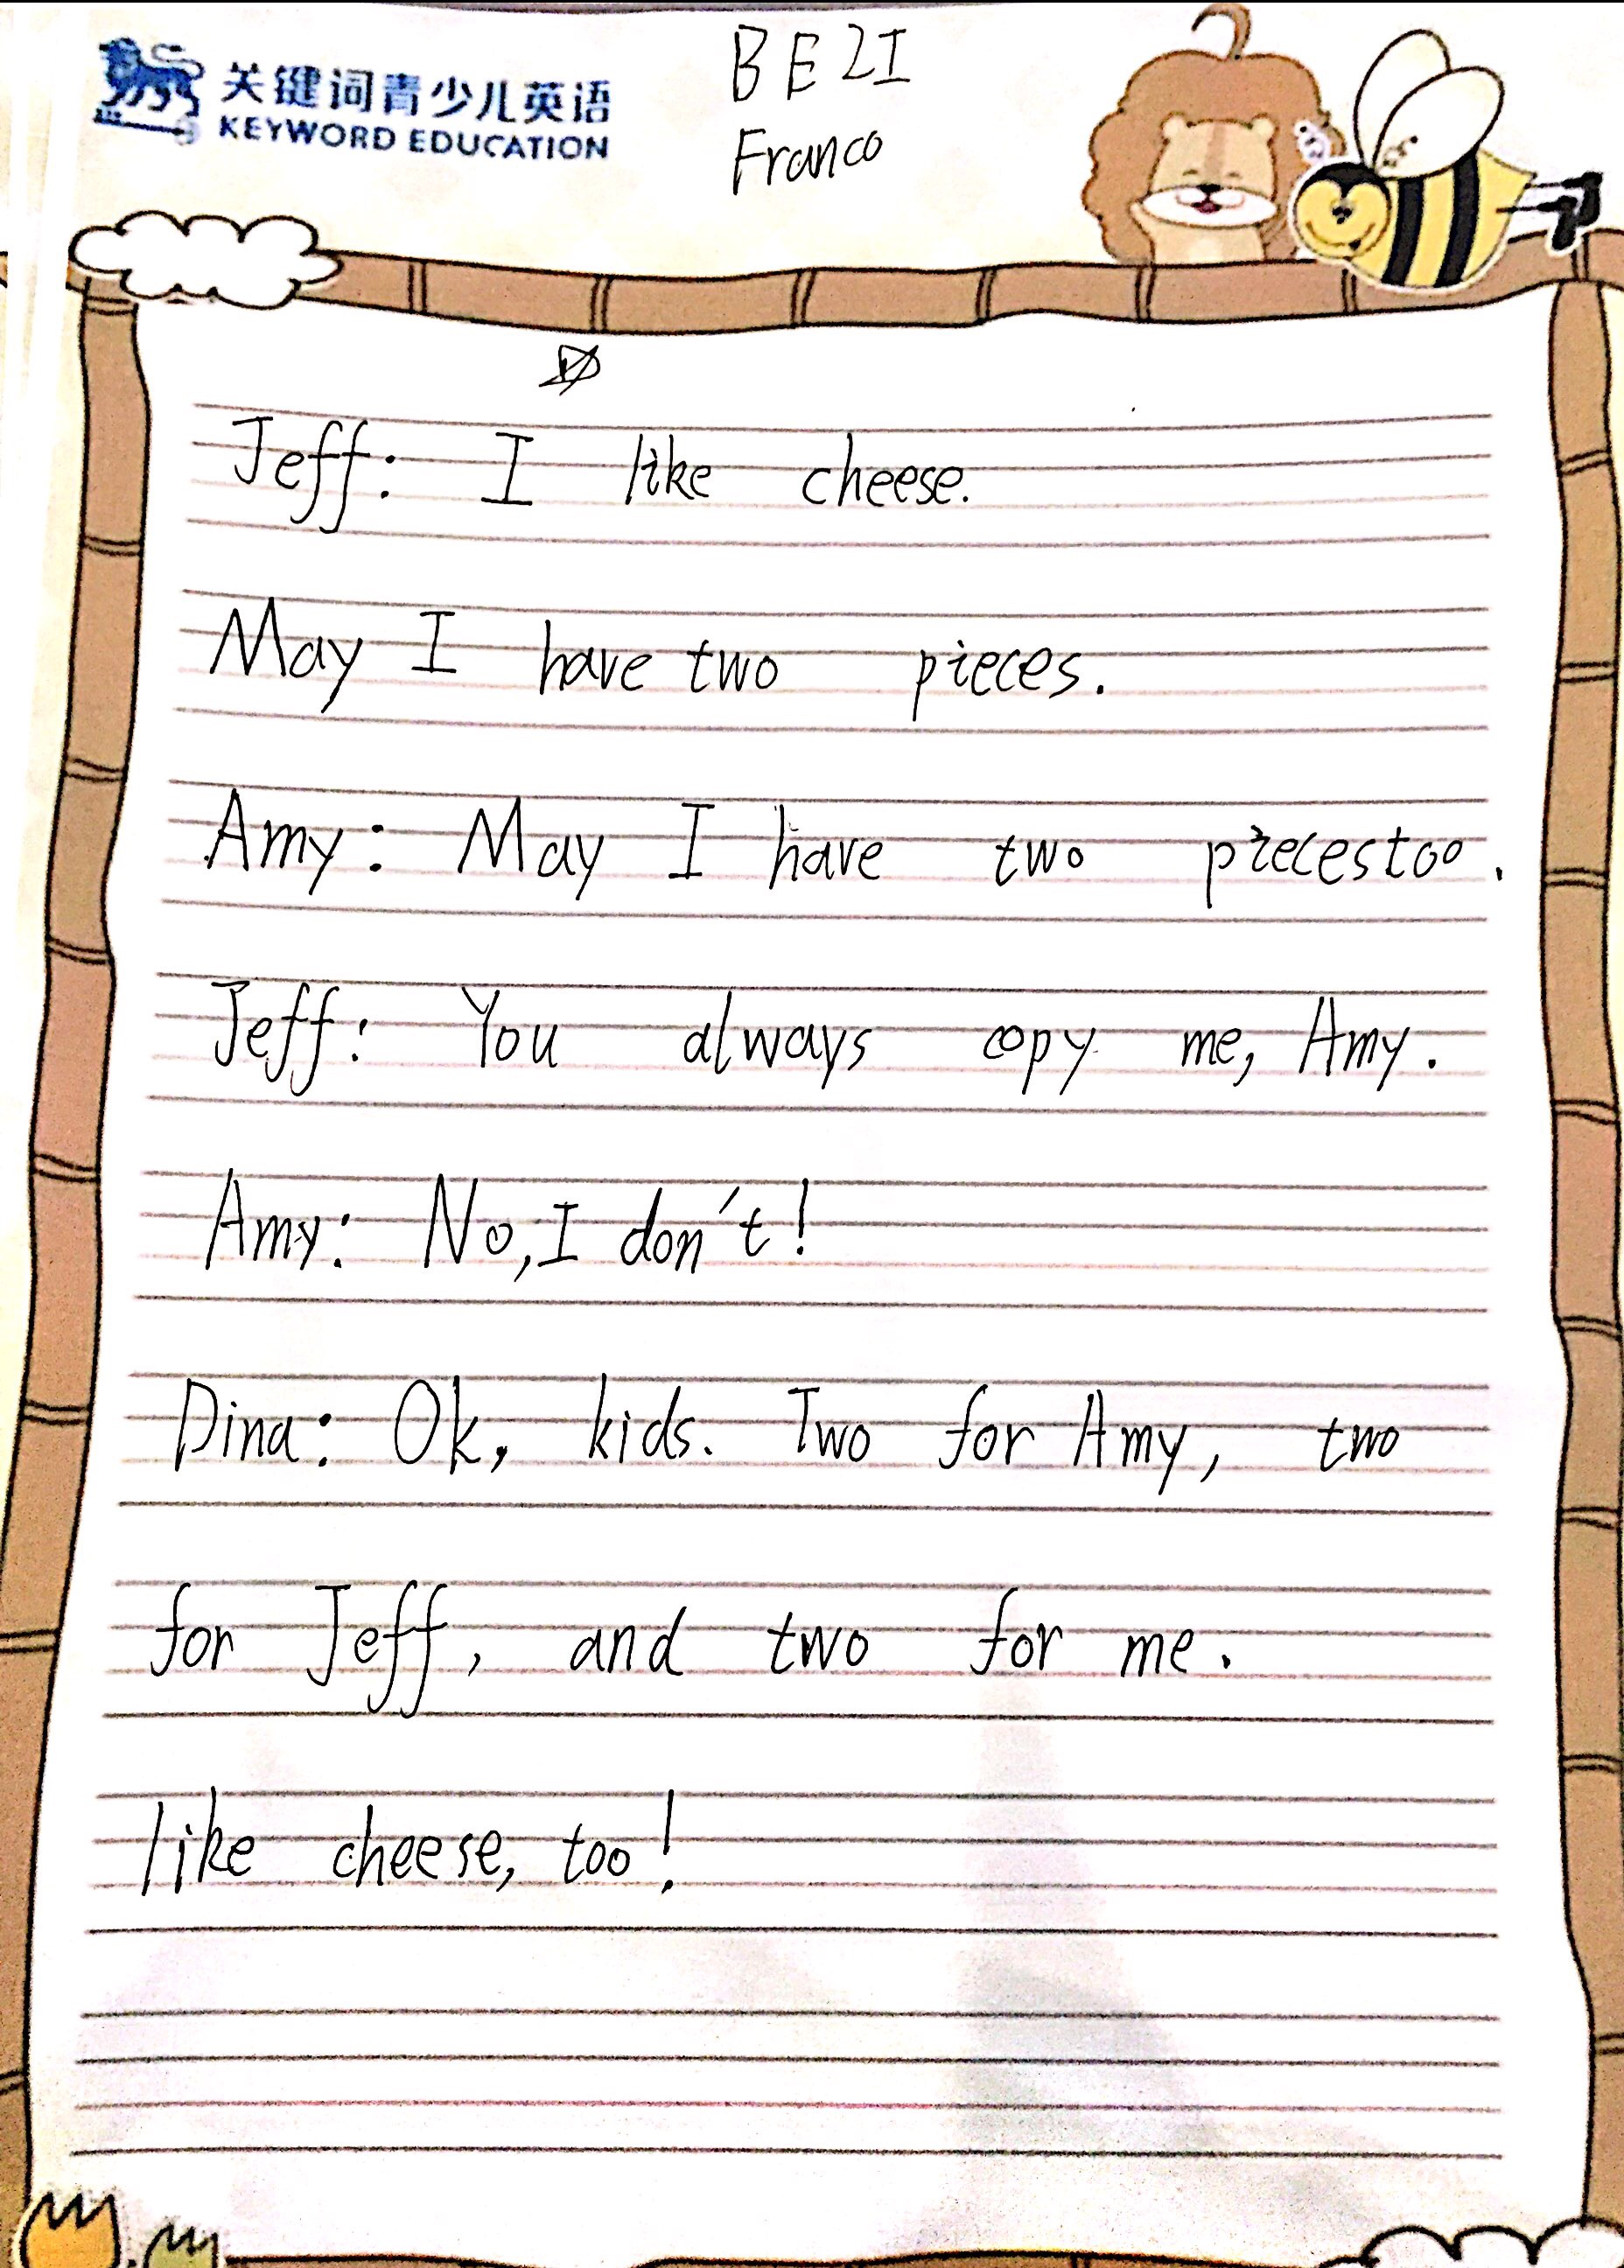 关键词青少儿英语
KEYWORD EDUCATION
BE2I
Franco
Jeff: I like cheese.
May I have two pieces.
Amy: May I have two pieces too.
Jeff: You always copy me, Amy.
Amy: No, I don't!
Dina: Ok, kids. Two for Amy, two
for Jeff, and two for me.
like cheese, too!